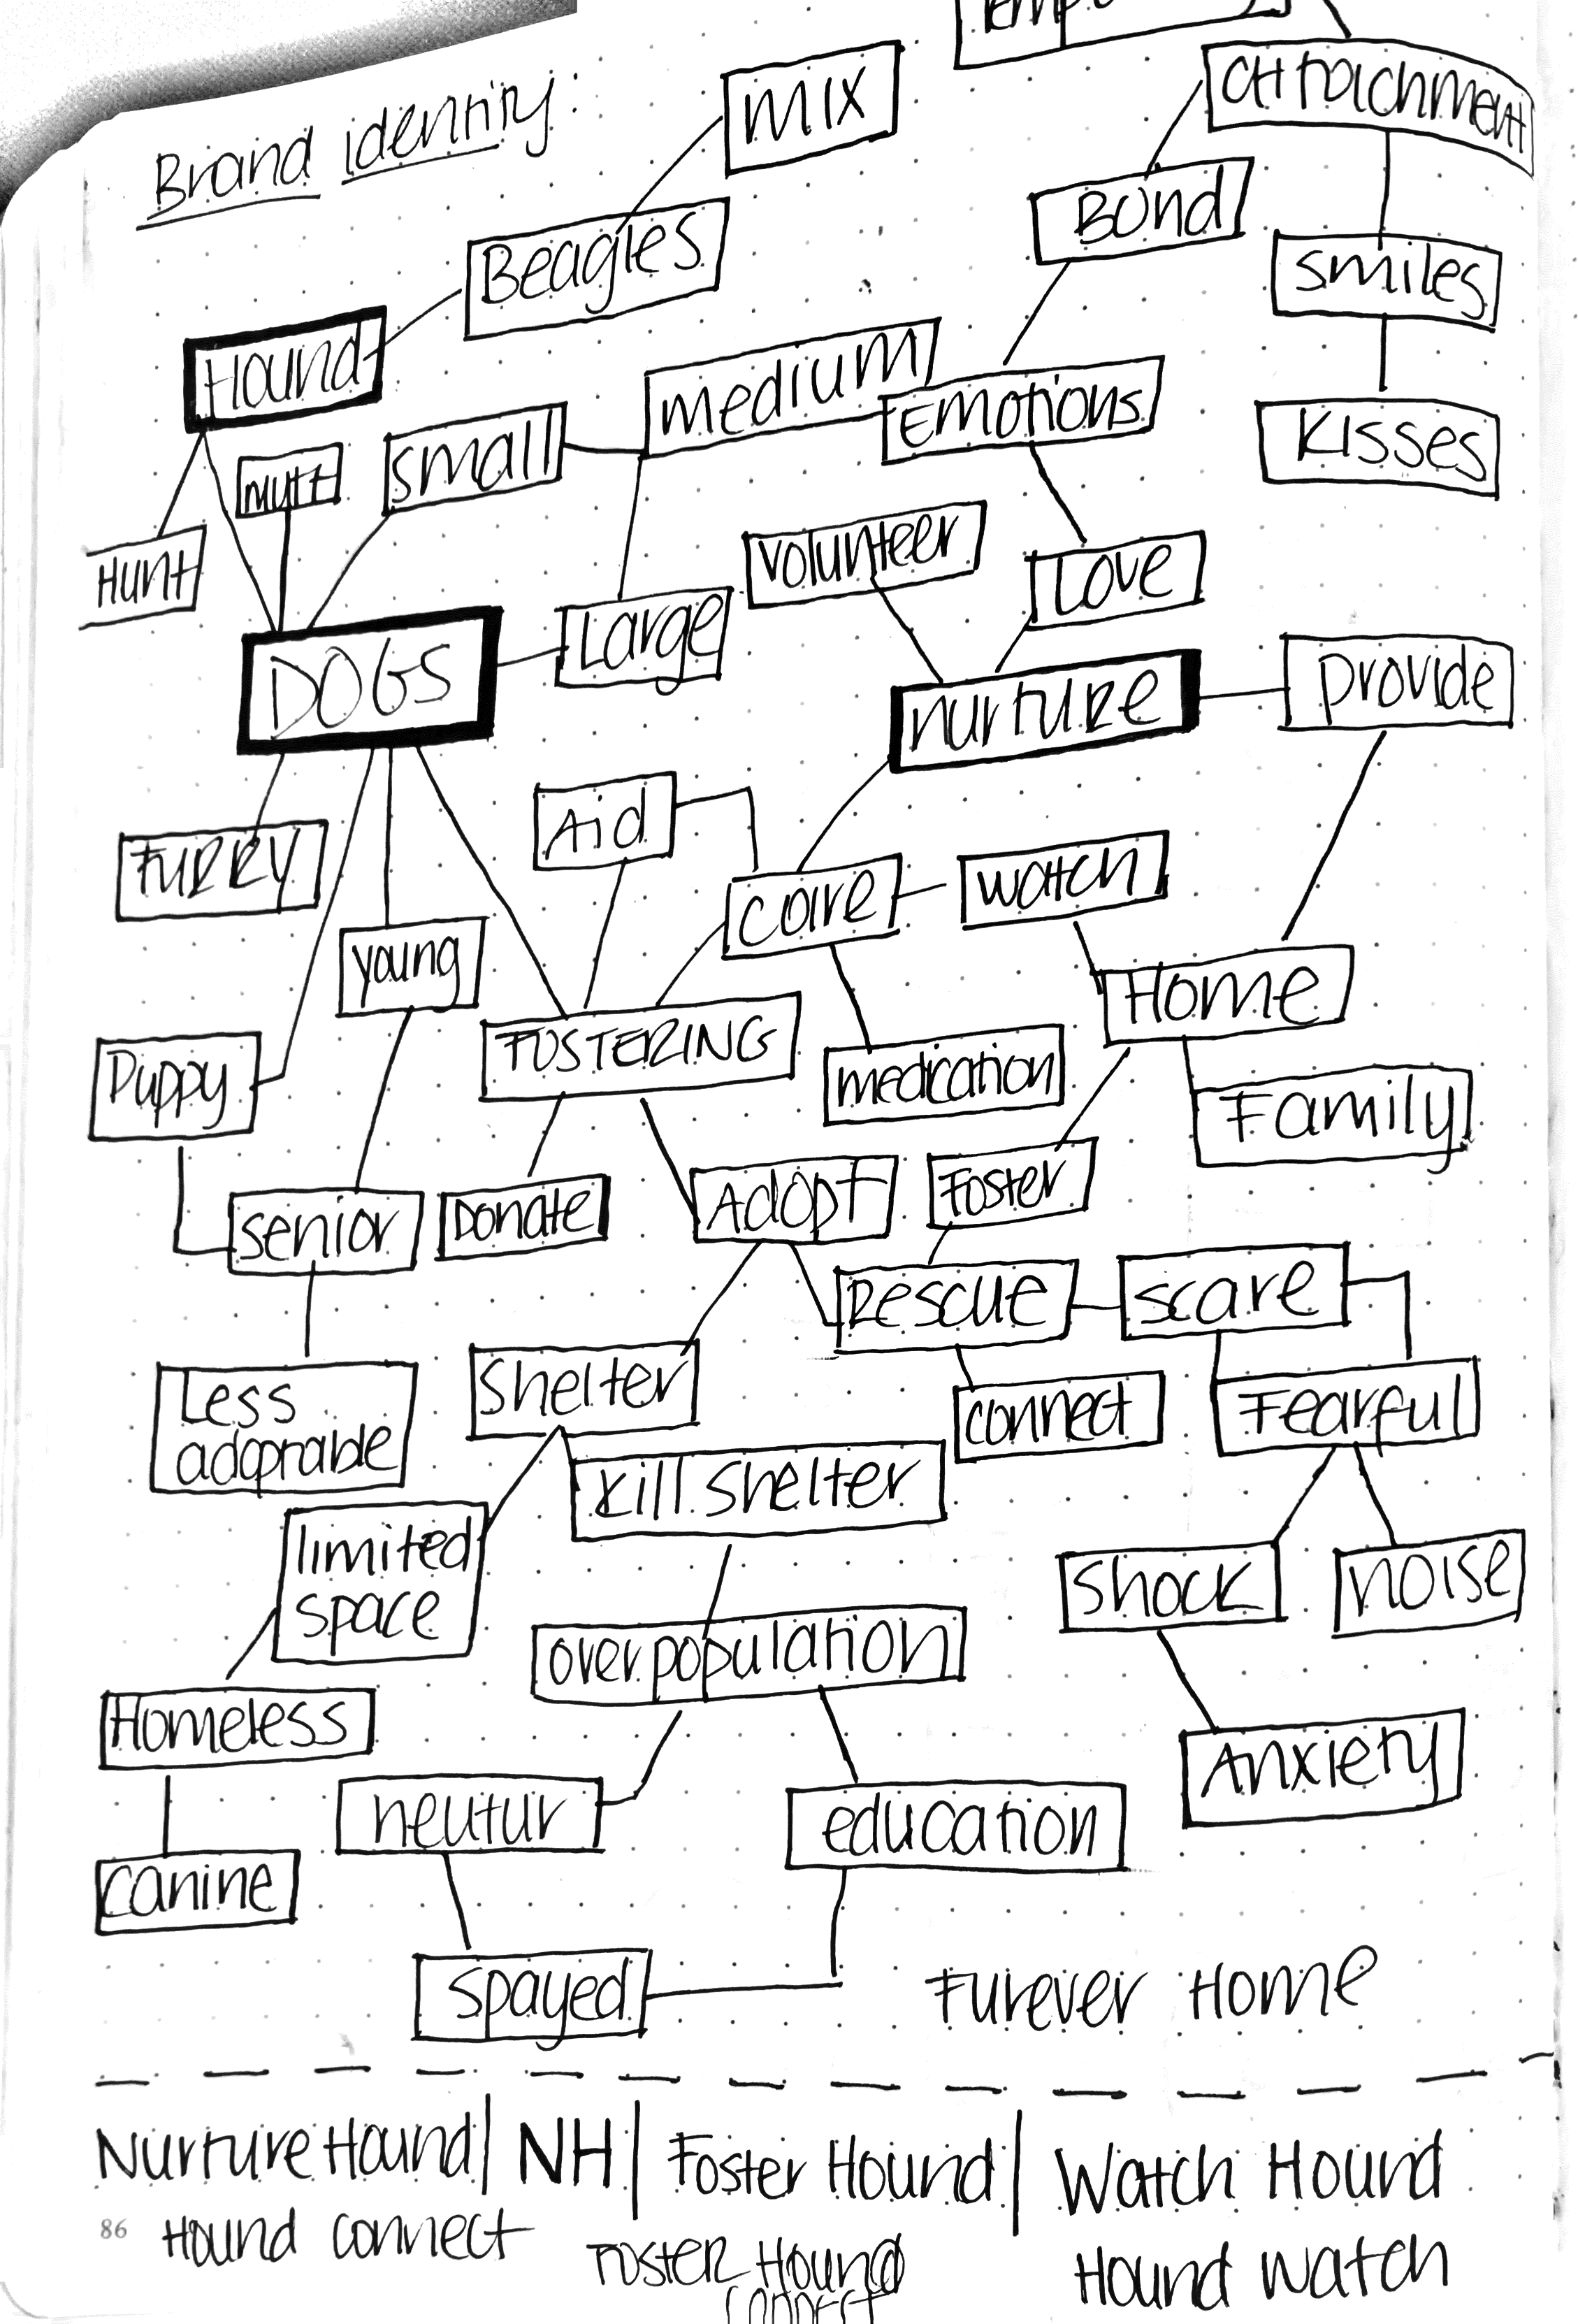 Brand identity:
MIX
Attachment
Bond
Beagles
smiles
Hound
medium
Emotions
Kisses
small
mutt
volunteer
Hunt
Love
Large
DOGS
nurture
provide
Aid
FURRY
care
watch
young
Home
FOSTERING
Puppy
medication
Family
Foster
Adopt
senior
Donate
Rescue
scare
Shelter
connect
Fearful
Less
kill shelter
limited
space
Shock
noise
overpopulation
Homeless
Anxiety
neutur
education
canine
spayed
Furever Home
Nurture Hound | NH | Foster Hound | Watch Hound
86 Hound connect
Foster Hound
connect
Hound watch